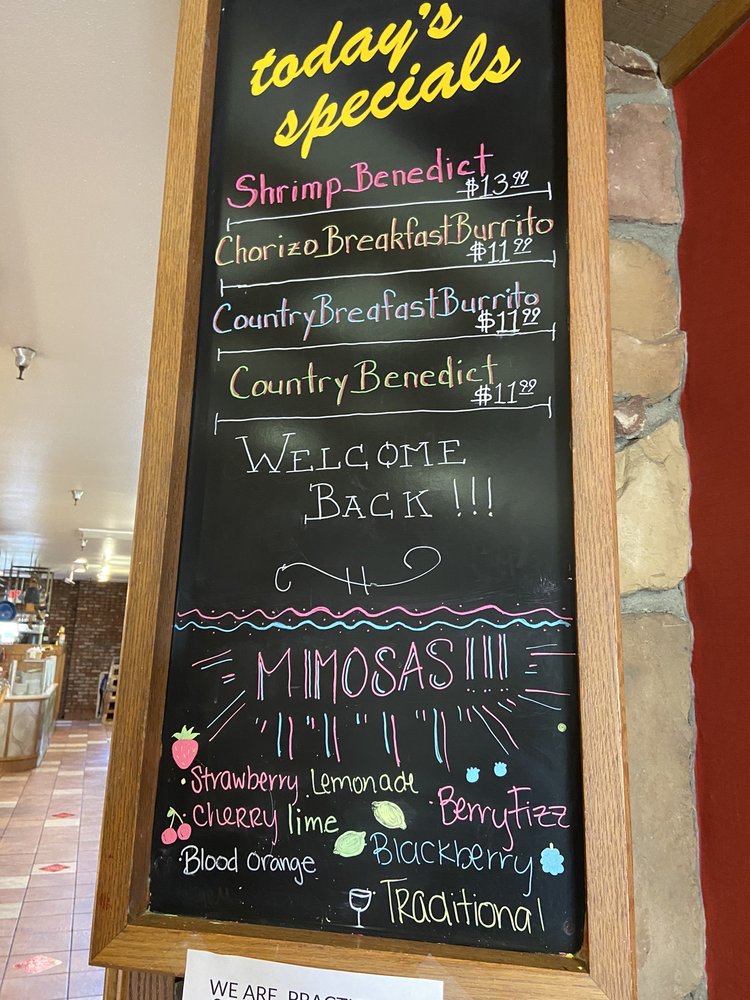 today's
specials
Shrimp Benedict
$13.99
Chorizo Breakfast Burrito
$11.99
Country Breafast Burrito
$11.99
Country Benedict
$11.99
WELCOME
BACK!!!
MIMOSAS!!!
Strawberry Lemonade
Cherry lime
Berry Fizz
Blood Orange
Blackberry
Traditional
WE ARE